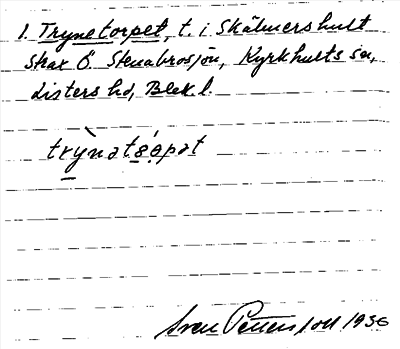 1. Trynetorpet, t. i Skälmershult
strax Ö. Stenabrosjön, Kyrkhults sn,
Listers hd, Blek. l.
trỳnətså̀pət
Sven Pettersson 1936